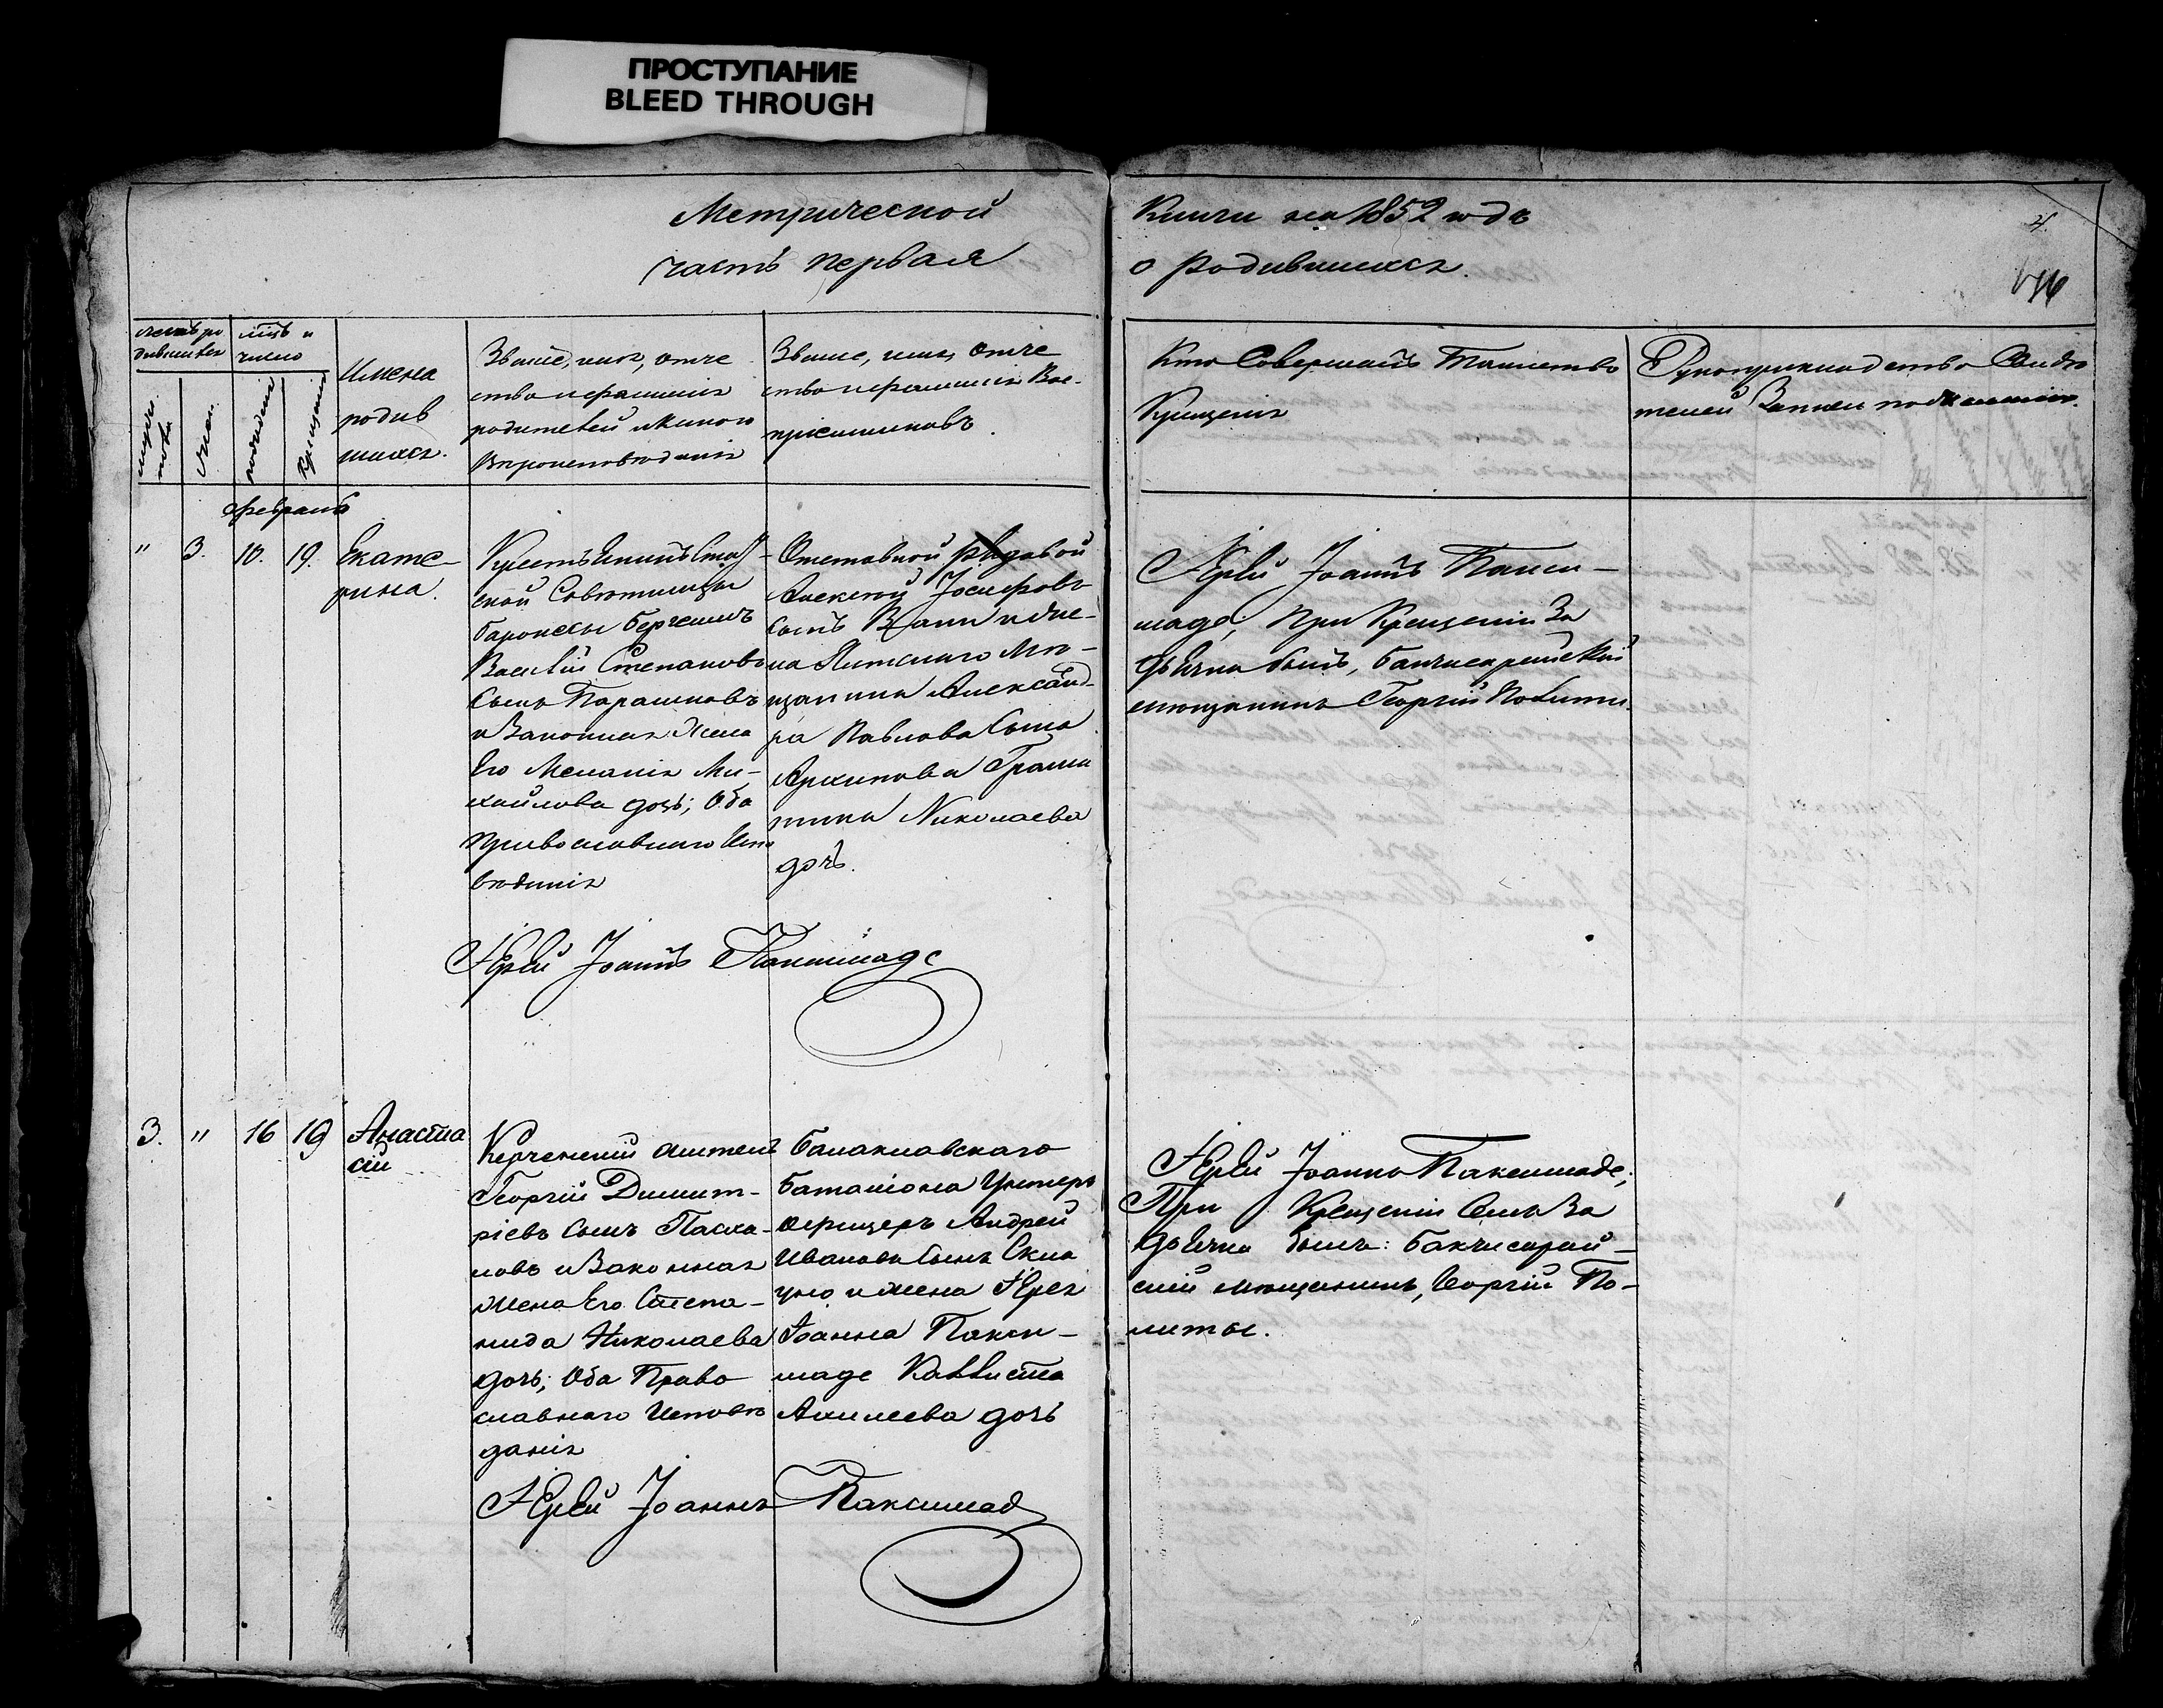 ПРОСТУПАНИЕ
BLEED THROUGH
Метрической
часть первая
Книги на 1852 годъ
о родившихся.
4.
счетъ ро
дившихся
мцъ и
число
мужес.
пола
женс.
рожденія
крещенія
Имена
родив
шихся.
Званіе, имя, отче
ство и фамилія
родителей и какого
вѣроисповѣданія
Званіе, имя, отче
ство и фамилія вос-
пріемниковъ.
Кто Совершалъ Таинство
Крещенія
Рукоприкладство Свидѣ
телей Записи по желанію.
февраль
" 3. 10. 19.
Екате-
рина.
Крестьянинъ Стат-
ской Совѣтницы
баронессы Бергеимъ
Василій Степановъ
сынъ Парашковъ
и Законная Жена
Его Меланія Ми-
хайлова дочь; Оба
Православнаго Испо
вѣданія
Отставной рядовой
Алексѣй Іосифовъ
сынъ и
на Ялтскаго Мѣ-
щанина Александ-
ра Павлова Сына
Архипова
Николаева
дочь.
Іерей Іоаннъ Пакси-
маде; При Крещеніи За
дьячка былъ, бахчисарайскій
мѣщанинъ Георгій Политы.
Іерей Іоаннъ Паксимаде
3. " 16 19
Анаста
сій
Керченскій житель
Георгій Димит-
ріевъ Сынъ Пасха-
ловъ и Законная
Жена Его Степа-
нида Николаева
дочь; Оба Право
славнаго Исповѣ
данія
балаклавскаго
баталіона Унтеръ
офицеръ Андрей
Ивановъ Сынъ
и жена Іерея
Іоанна Пакси-
маде Каллиста
Ахилеева дочь
Іерей Іоаннъ Паксимаде;
При Крещеніи Семъ За
дьячка былъ: бахчисарай-
скій мѣщанинъ, Георгій По-
литы.
Іерей Іоаннъ Паксимад